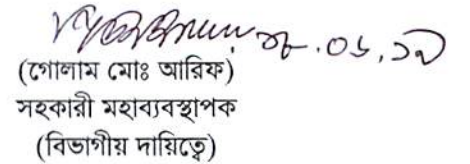 (গোলাম মোঃ আরিফ)
সহকারী মহাব্যবস্থাপক
(বিভাগীয় দায়িত্বে)